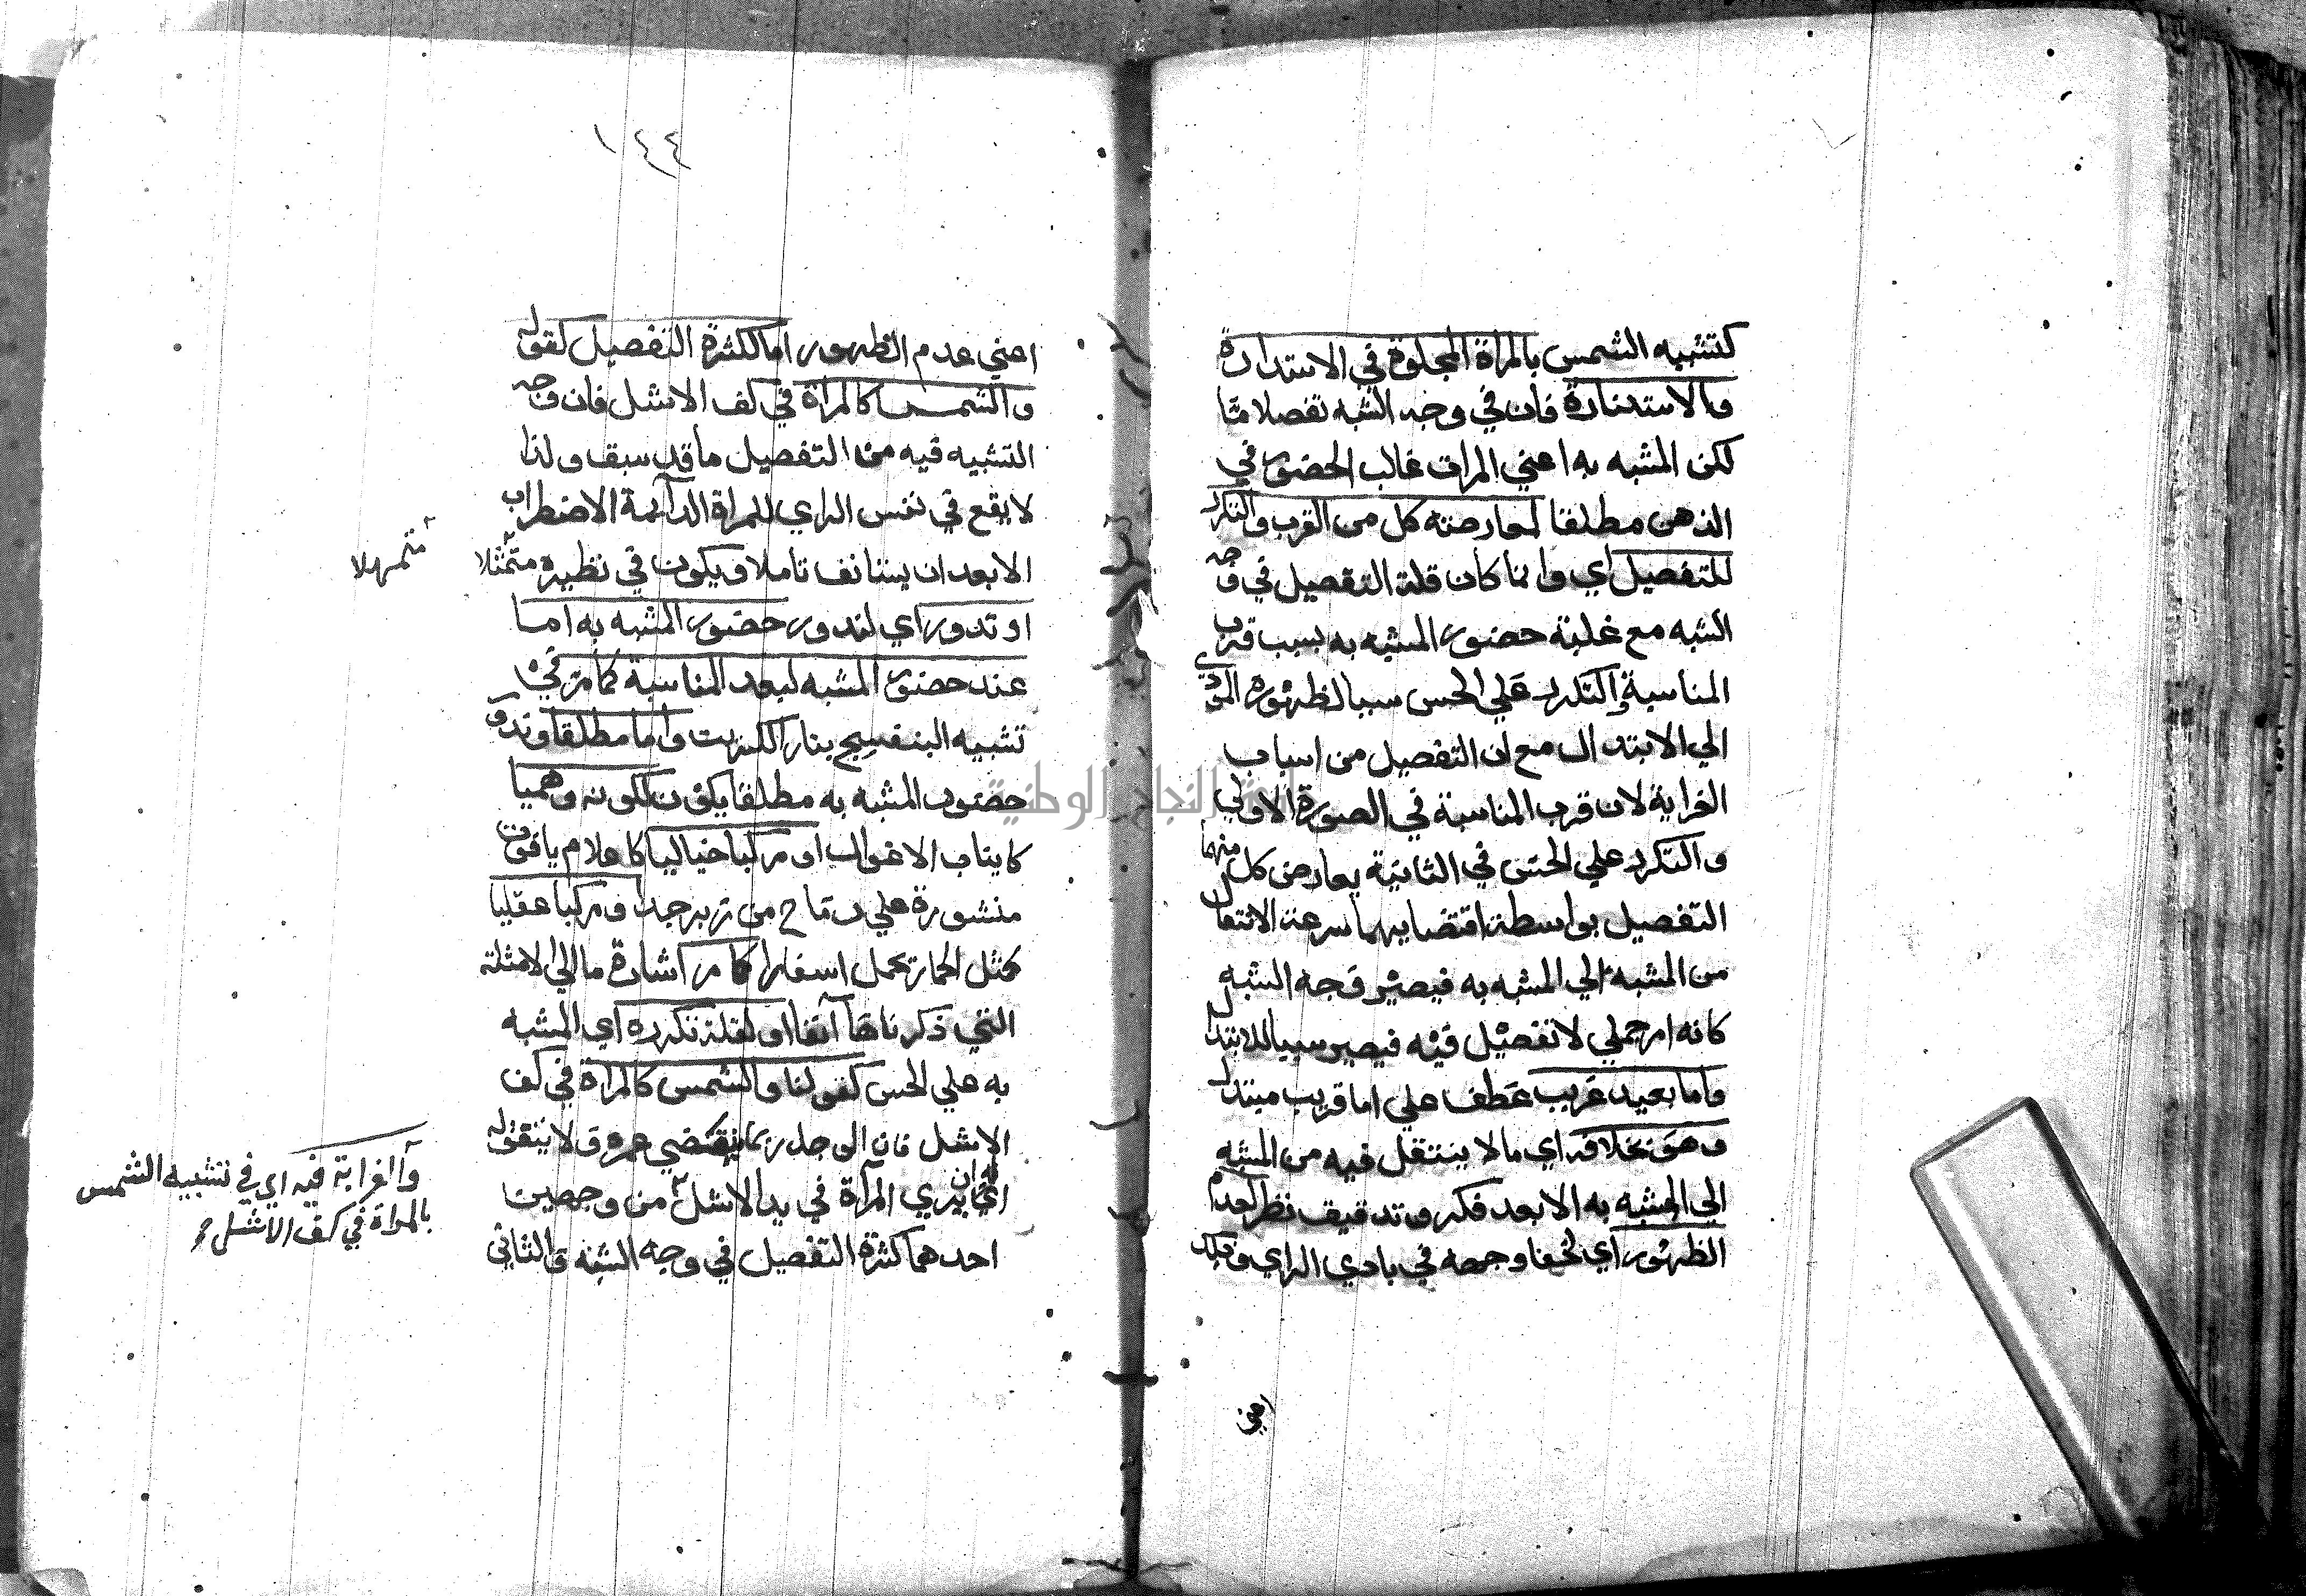 كتشبيه الشمس بالمراة المجلوة في الاستدارة
والاستنارة فان في وجه الشبه تفصلا ما
لكن المشبه به اعني المراة غالب الحضور في
الذهن مطلقا لمعارضة كل من القرب والتكرر
للتفصيل اي وانما كان قلة التفصيل في وجه
الشبه مع غلبة حضور المشبه به بسبب قرب
المناسبة والتكرر علي الحس سببا لظهوره المؤدي
الي الابتدال مع ان التفصيل من اسباب
الغرابة لان قرب المناسبة في الصورة الاولي
والتكرر علي الحس في الثانية يعارض كل منهما
التفصيل بواسطة اقتضايهما سرعة الانتقال
من المشبه الي المشبه به فيصير وجه الشبه
كانه امر جملي لا تفصيل فيه فيصير سببا للابتدال
واما بعيد غريب عطف علي اما قريب مبتدل
وهو بخلافه اي ما لا ينتقل فيه من المشبه
الي المشبه به الا بعد فكر وتدقيق نظر لعدم
الظهور اي لخفا وجهه في بادي الراي وذلك
اعني
١٤٤
اعني عدم الظهور اما لكثرة التفصيل كقوله
والشمس كالمراة في كف الاشل فان وجه
التشبيه فيه من التفصيل ما قد سبق ولذا
لا يقع في نفس الراي للمراة الدآيمة الاضطراب
الا بعد ان يستانف تاملا ويكون في نظره متمثلا
متمهلا
او ندور اي لندور حضور المشبه به اما
عند حضور المشبه لبعد المناسبة كما مر في
تشبيه البنفسج بنار الكبريت واما مطلقا وندور
حضور المشبه به مطلقا يكون لكونه وهميا
كانياب الاغوال او مركبا خياليا كاعلام ياقوت
منشورة علي رماح من زبرجد او مركبا عقليا
كمثل الحمار يحمل اسفارا كما مر اشارة ما الي الامثلة
التي ذكرناها آنفا او لقلة تكرره اي المشبه
به علي الحس كقولنا والشمس كالمراة في كف
الاشل فان الرجل ربما ينقضي عمره ولا يتفق له
ان يري المرآة في يد الاشل من وجهين
والغرابة فيه اي في تشبيه الشمس
بالمراة في كف الاشل
احدهما كثرة التفصيل في وجه الشبه والثاني